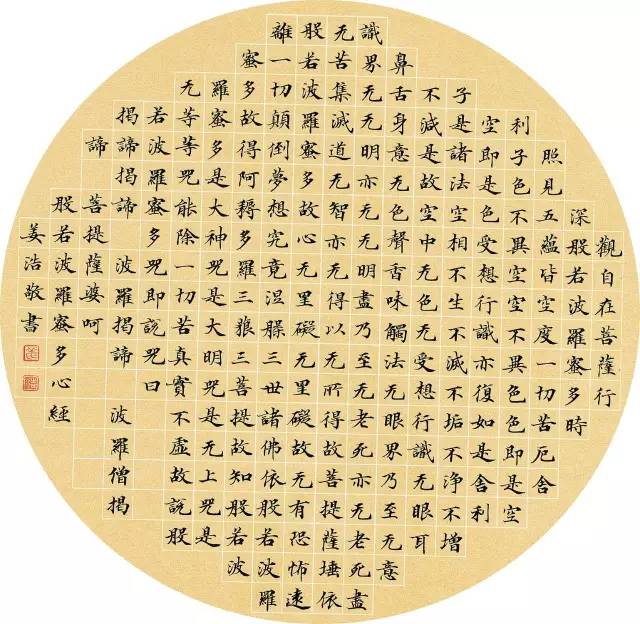 觀自在菩薩行
深般若波羅蜜多時
照見五蘊皆空度一切苦厄舍
利子色不異空空不異色色即是空
空即是色受想行識亦復如是舍利
子是諸法空相不生不滅不垢不淨不增
不減是故空中无色无受想行識无眼耳
鼻舌身意无色聲香味觸法无眼界乃至无意
識界无无明亦无无明盡乃至无老死亦无老死盡
无苦集滅道无智亦无得以无所得故菩提薩埵依
般若波羅蜜多故心无罣礙无罣礙故无有恐怖遠
離一切顛倒夢想究竟涅槃三世諸佛依般若波羅
蜜多故得阿耨多羅三藐三菩提故知般若波
羅蜜多是大神咒是大明咒是无上咒是
无等等咒能除一切苦真實不虛故說般
若波羅蜜多咒即說咒曰
揭諦揭諦 波羅揭諦 波羅僧揭
諦 菩提薩婆呵
般若波羅蜜多心經
姜浩敬書